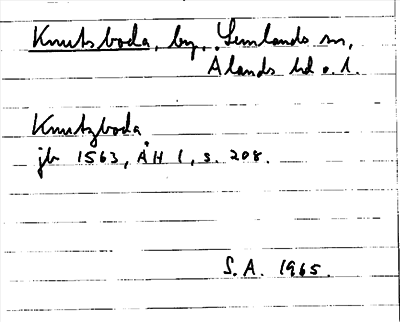 Knutsboda, by, Lemlands sn,
Ålands hd o. l.
Knutzboda
jb 1563, ÅH 1, s. 208.
S.A. 1965.